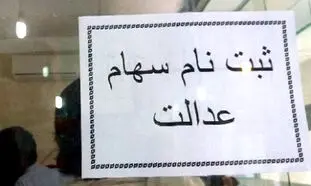 ثبت نام سهام
عدالت